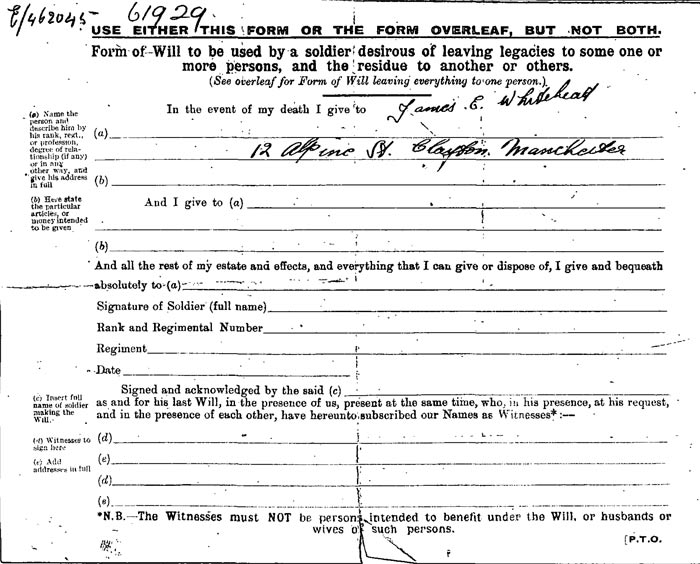 E/462045 61929
USE EITHER THIS FORM OR THE FORM OVERLEAF, BUT NOT BOTH.
Form of Will to be used by a soldier desirous of leaving legacies to some one or
more persons, and the residue to another or others.
(See overleaf for Form of Will leaving everything to one person.)
In the event of my death I give to James E. Whitehead
(a) Name the
person and
describe him by
his rank, rest.,
or profession,
degree of rela-
tionship (if any)
or in any
other way, and
give his address
in full
(a)
12 Alpine St. Clayton. Manchester
(b)
(b) Here state
the particular
articles, or
money intended
to be given
And I give to (a)
(b)
And all the rest of my estate and effects, and everything that I can give or dispose of, I give and bequeath
absolutely to (a)
Signature of Soldier (full name)
Rank and Regimental Number
Regiment
Date
(c) Insert full
name of soldier
making the
Will.
Signed and acknowledged by the said (c)
as and for his last Will, in the presence of us, present at the same time, who, in his presence, at his request,
and in the presence of each other, have hereunto subscribed our Names as Witnesses*:—
(d) Witnesses to
sign here
(e) Add
addresses in full
(d)
(e)
(d)
(e)
*N.B.—The Witnesses must NOT be persons intended to benefit under the Will, or husbands or
wives of such persons.
[P.T.O.